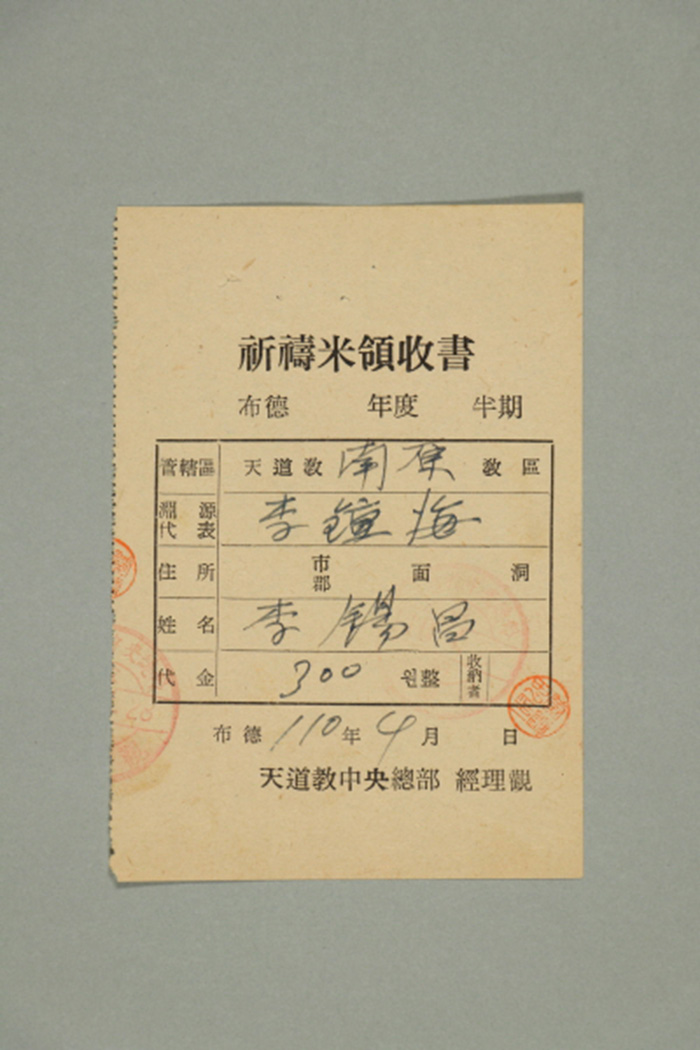 祈禱米領收書
布德 年度 半期
管轄區 天道敎 南原 敎區
淵源代表 李鐘海
住所 市郡 面 洞
姓名 李錫昌
代金 300 원整 收納者
布德 110年 4月 日
天道敎中央總部 經理觀